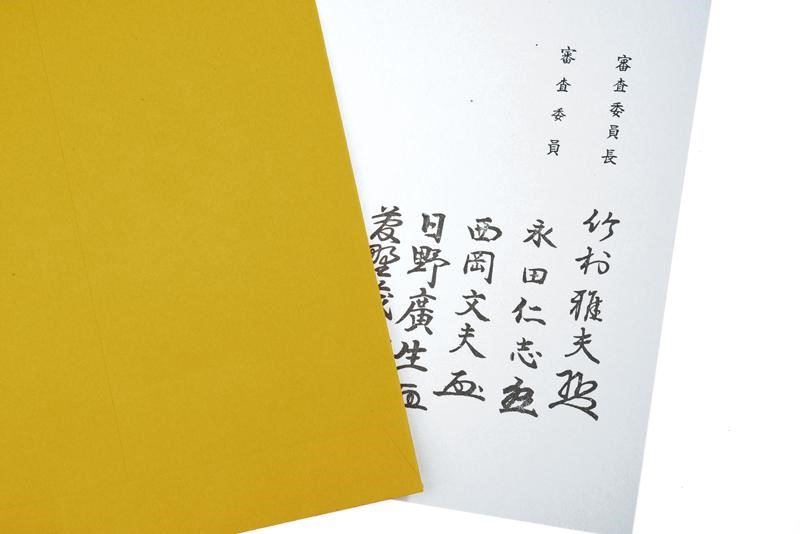 審査委員長 竹村雅夫
審査委員 永田仁志
西岡文夫
日野廣生